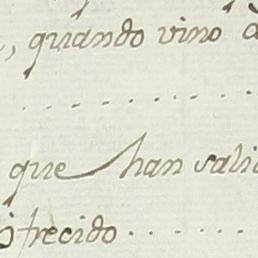 quando vino
. . . . . . . . . .
que han salid
frecido . . . . . .